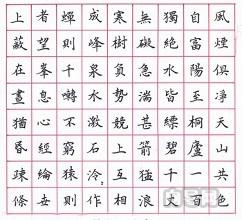 風煙俱凈天山共色
自富陽至桐廬一百
獨絕水皆縹碧千丈
無礙急湍甚箭猛浪
寒樹負勢競上互相
成峰泉水激石泠作
蟬則千囀不窮猿則
者望峯息心經綸世
上蔽在晝猶昏疎條